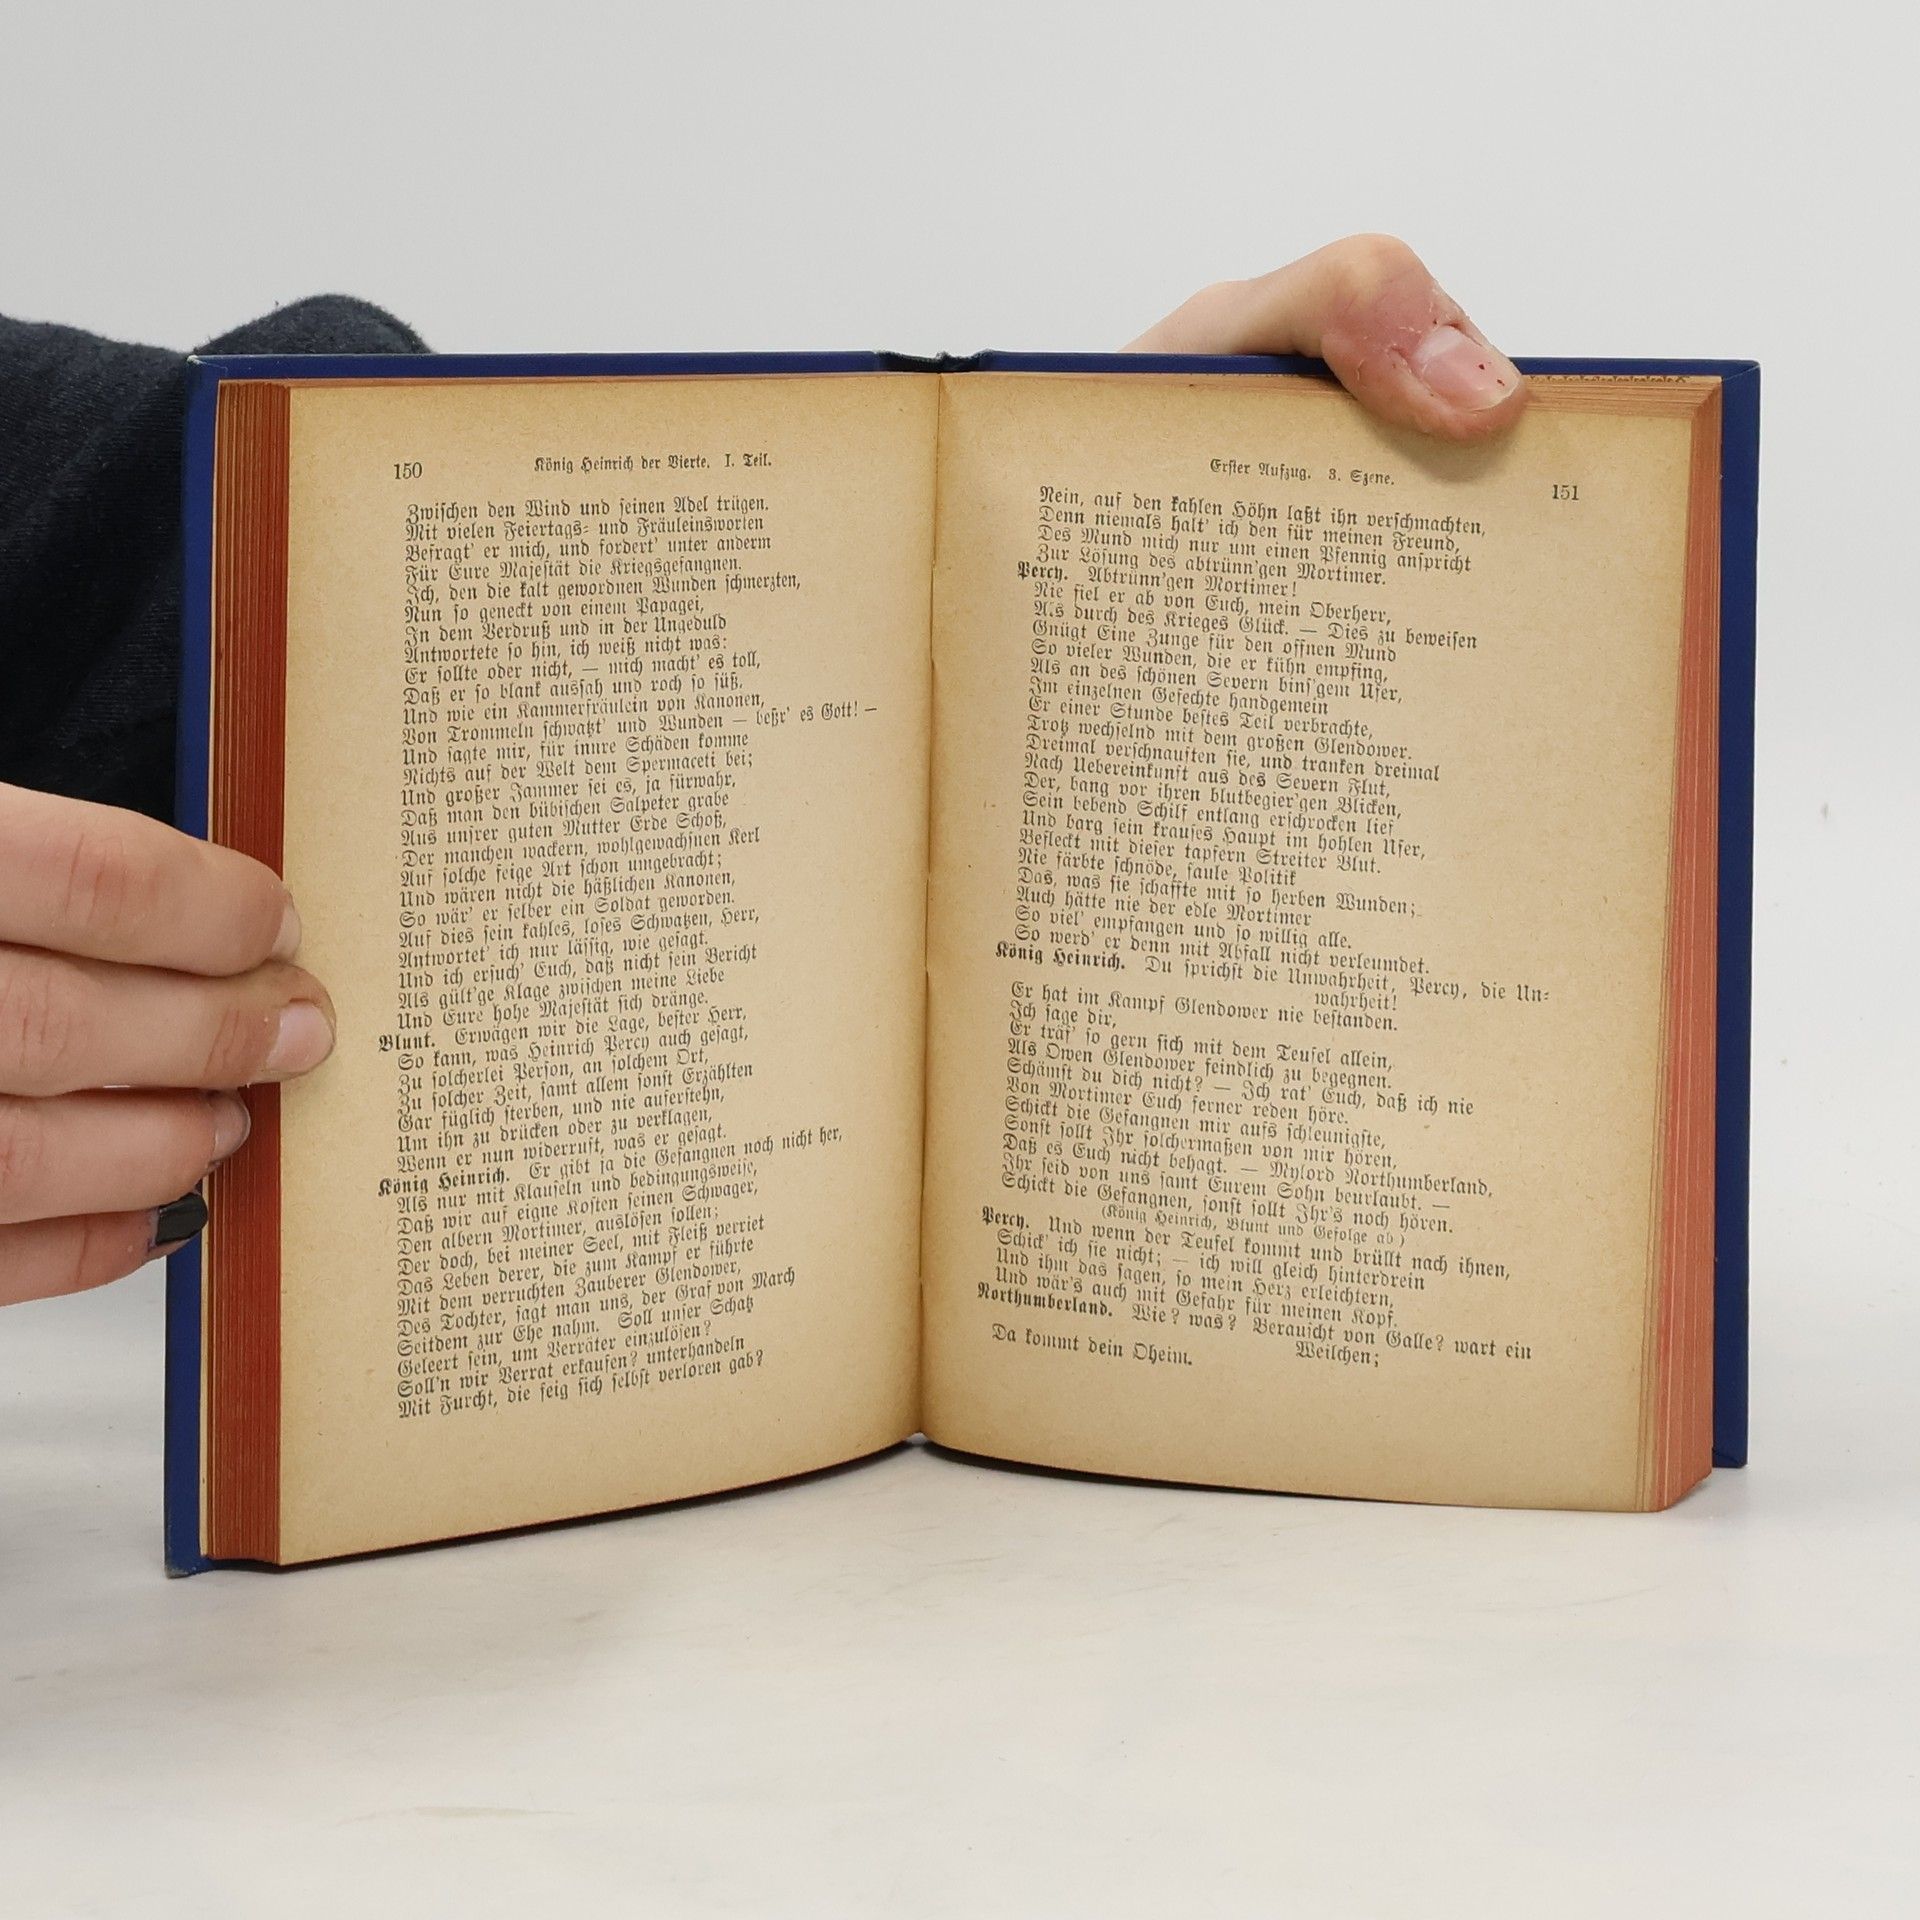 150
König Heinrich der Vierte. I. Teil.
Zwischen den Wind und seinen Adel trügen.
Mit vielen Feiertags- und Fräuleinsworten
Befragt' er mich, und fordert' unter anderm
Für Eure Majestät die Kriegsgefangnen.
Ich, den die kalt gewordnen Wunden schmerzten,
Nun so geneckt von einem Papagei,
In dem Verdruß und in der Ungeduld
Antwortete so hin, ich weiß nicht was:
Er sollte oder nicht, — mich macht' es toll,
Daß er so blank aussah und roch so süß,
Und wie ein Kammerfräulein von Kanonen,
Von Trommeln schwatzt' und Wunden — beßr' es Gott! —
Und sagte mir, für innre Schäden komme
Nichts auf der Welt dem Spermaceti bei;
Und großer Jammer sei es, ja fürwahr,
Daß man den bübischen Salpeter grabe
Aus unsrer guten Mutter Erde Schoß,
Der manchen wackern, wohlgewachsnen Kerl
Auf solche feige Art schon umgebracht;
Und wären nicht die häßlichen Kanonen,
So wär' er selber ein Soldat geworden.
Auf dies sein kahles, loses Schwatzen, Herr,
Antwortet' ich nur lässig, wie gesagt.
Und ich ersuch' Euch, daß nicht sein Bericht
Als gült'ge Klage zwischen meine Liebe
Und Eure hohe Majestät sich dränge.
Blunt. Erwägen wir die Lage, bester Herr,
So kann, was Heinrich Percy auch gesagt,
Zu solcherlei Person, an solchem Ort,
Zu solcher Zeit, samt allem sonst Erzählten
Gar füglich sterben, und nie auferstehn,
Um ihn zu drücken oder zu verklagen,
Wenn er nun widerruft, was er gesagt.
König Heinrich. Er gibt ja die Gefangnen noch nicht her,
Als nur mit Klauseln und bedingungsweise,
Daß wir auf eigne Kosten seinen Schwager,
Den albern Mortimer, auslösen sollen;
Der doch, bei meiner Seel, mit Fleiß verriet
Das Leben derer, die zum Kampf er führte
Mit dem verruchten Zauberer Glendower,
Des Tochter, sagt man uns, der Graf von March
Seitdem zur Ehe nahm. Soll unser Schatz
Geleert sein, um Verräter einzulösen?
Soll'n wir Verrat erkaufen? unterhandeln
Mit Furcht, die feig sich selbst verloren gab?
Erster Aufzug. 3. Szene.
151
Nein, auf den kahlen Höhn laßt ihn verschmachten,
Denn niemals halt' ich den für meinen Freund,
Des Mund mich nur um einen Pfennig anspricht
Zur Lösung des abtrünn'gen Mortimer.
Percy. Abtrünn'gen Mortimer!
Nie fiel er ab von Euch, mein Oberherr,
Als durch des Krieges Glück. — Dies zu beweisen
Gnügt Eine Zunge für den offnen Mund
So vieler Wunden, die er kühn empfing,
Als an des schönen Severn bins'gem Ufer,
Im einzelnen Gefechte handgemein
Er einer Stunde bestes Teil verbrachte,
Trotz wechselnd mit dem großen Glendower.
Dreimal verschnauften sie, und tranken dreimal
Nach Uebereinkunft aus des Severn Flut,
Der, bang vor ihren blutbegier'gen Blicken,
Sein bebend Schilf entlang erschrocken lief
Und barg sein krauses Haupt im hohlen Ufer,
Befleckt mit dieser tapfern Streiter Blut.
Nie färbte schnöde, faule Politik
Das, was sie schaffte mit so herben Wunden;
Auch hätte nie der edle Mortimer
So viel' empfangen und so willig alle.
So werd' er denn mit Abfall nicht verleumdet.
König Heinrich. Du sprichst die Unwahrheit, Percy, die Un-
wahrheit!
Er hat im Kampf Glendower nie bestanden.
Ich sage dir,
Er träf' so gern sich mit dem Teufel allein,
Als Owen Glendower feindlich zu begegnen.
Schämst du dich nicht? — Ich rat' Euch, daß ich nie
Von Mortimer Euch ferner reden höre.
Schickt die Gefangnen mir aufs schleunigste,
Sonst sollt Ihr solchermaßen von mir hören,
Daß es Euch nicht behagt. — Mylord Northumberland,
Ihr seid von uns samt Eurem Sohn beurlaubt. —
Schickt die Gefangnen, sonst sollt Ihr's noch hören.
(König Heinrich, Blunt und Gefolge ab.)
Percy. Und wenn der Teufel kommt und brüllt nach ihnen,
Schick' ich sie nicht; — ich will gleich hinterdrein
Und ihm das sagen, so mein Herz erleichtern,
Und wär's auch mit Gefahr für meinen Kopf.
Northumberland. Wie? was? Berauscht von Galle? wart ein
Weilchen;
Da kommt dein Oheim.